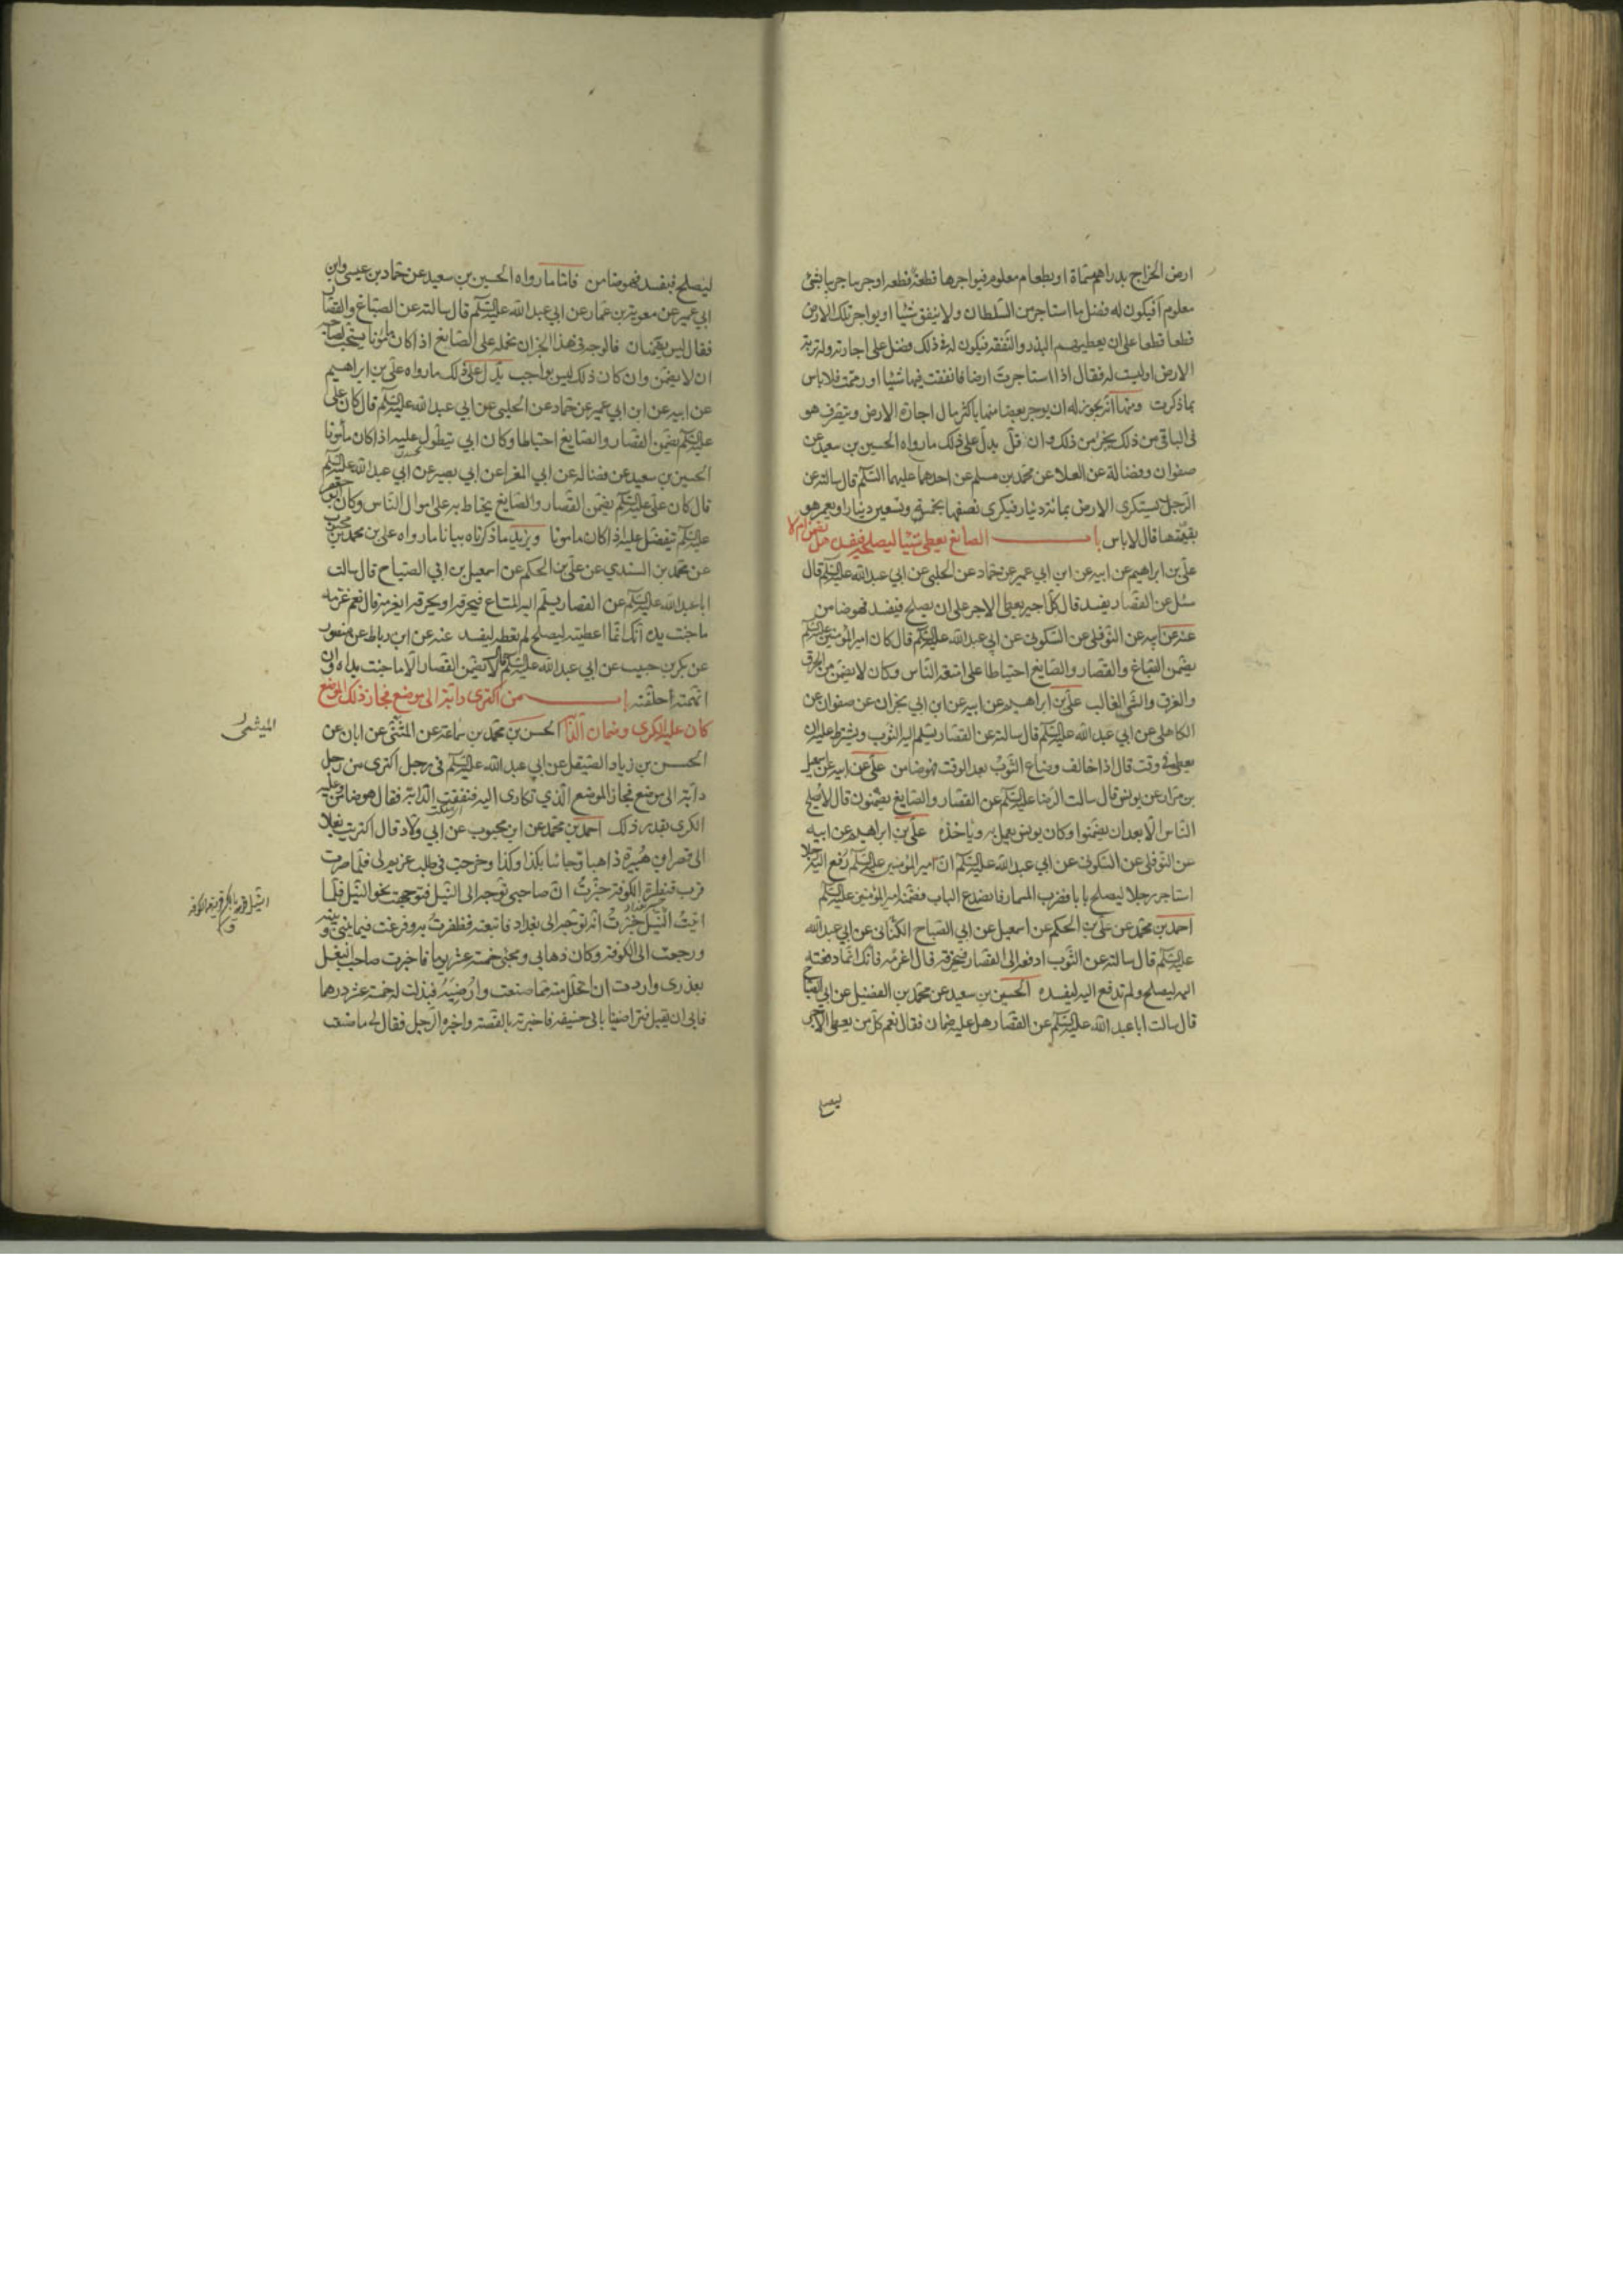 ارض الخراج بدراهم مسماة او بطعام معلوم فيواجرها قطعة قطعة او جريبا جريبا بشئ
معلوم أفيكون له فضل ما استاجر من السلطان ولا ينفق شيئا او يواجر تلك الارض
قطعا قطعا على ان يعطيهم البذر والنفقة فيكون له في ذلك فضل على اجارته وله تربة
الارض اوليست له فقال اذا استاجرت ارضا فانفقت فيها شيئا او رممت فلا باس
بما ذكرت ومنها انه يجوز له ان يوجر بعضا منها باكثر مال اجارة الارض ويتصرف هو
فى الباقى من ذلك بجزء من ذلك وان قل يدل على ذلك ما رواه الحسين بن سعيد عن
صفوان وفضالة عن العلا عن محمد بن مسلم عن احدهما عليهما السلم قال سالته عن
الرجل يستكرى الارض بمائة دينار فيكرى نصفها بخمسة وتسعين دينارا ويعمر هو
بقيتها قال لاباس باب الصايغ يعطى شيئا ليصلحه فيفسده هل يضمن ام لا
على بن ابراهيم عن ابيه عن ابن ابي عمير عن حماد عن الحلبى عن ابي عبد الله عليه السلم قال
سئل عن القصار يفسد قال كل اجير يعطى الاجر على ان يصلح فيفسد فهو ضامن
عنه عن ابيه عن النوفلى عن السكونى عن ابى عبد الله عليه السلم قال كان امير المؤمنين عليه السلم
يضمن الصباغ والقصار والصايغ احتياطا على امتعة الناس وكان لا يضمن من الحرق
والغرق والشئ الغالب على بن ابراهيم عن ابيه عن ابن ابي نجران عن صفوان عن
الكاهلى عن ابي عبد الله عليه السلم قال سالته عن القصار يسلم اليه الثوب ويشترط عليه ان
يعطى فى وقت قال اذا خالف وضاع الثوب بعد الوقت فهو ضامن على عن ابيه عن اسمعيل
بن مرار عن يونس قال سالت الرضا عليه السلم عن القصار والصايغ يضمنون قال لا يصلح
الناس الا بعد ان يضمنوا وكان يونس يعمل به وياخذه على بن ابراهيم عن ابيه
عن النوفلى عن السكونى عن ابي عبد الله عليه السلم ان امير المؤمنين عليه السلم رفع اليه رجلا
استاجر رجلا ليصلح بابا فضرب المسمار فانصدع الباب فضمنه امير المؤمنين عليه السلم
احمد بن محمد عن على بن الحكم عن اسمعيل عن ابي الصباح الكنانى عن ابي عبد الله
عليه السلم قال سالته عن الثوب ادفعه الى القصار فيخرقه قال اغرمه فانك انما دفعته
اليه ليصلح ولم تدفع اليه ليفسده الحسين بن سعيد عن محمد بن الفضيل عن ابي الصباح
قال سالت ابا عبد الله عليه السلم عن القصار هل عليه ضمان فقال نعم كل من يعطى الاجر
ليصلح
ليصلح فيفسد فهو ضامن فاما ما رواه الحسين بن سعيد عن حماد بن عيسى وابن
ابي عمير عن معوية بن عمار عن ابي عبد الله عليه السلم قال سالته عن الصباغ والقصار
فقال ليس يضمنان فالوجه فى هذا الخبر ان نحمله على الصانع اذا كان مامونا يستحب لصاحبه
ان لا يضمن وان كان ذلك ليس بواجب يدل على ذلك ما رواه على بن ابراهيم
عن ابيه عن ابن ابي عمير عن حماد عن الحلبى عن ابي عبد الله عليه السلم قال كان على
عليه السلم يضمن القصار والصايغ احتياطا وكان ابي يتطول عليه اذا كان مأمونا
الحسين بن سعيد عن فضالة عن ابي المغرا عن ابي بصير عن ابي عبد الله عليه السلم
قال كان على عليه السلم يضمن القصار والصايغ يحتاط به على اموال الناس وكان ابو جعفر
عليه السلم يتفضل عليه اذا كان مامونا ويزيد ما ذكرناه بيانا ما رواه على بن محمد بن محبوب
عن محمد بن السندي عن على بن الحكم عن اسمعيل بن ابي الصباح قال سالت
ابا عبد الله عليه السلم عن القصار يسلم اليه المتاع فيحرقه او يخرقه ايغرمه قال نعم غرمه
ما جنت يده انك انما اعطيته ليصلح لم تعطه ليفسد عنه عن ابن رباط عن منصور
عن بكر بن حبيب عن ابي عبد الله عليه السلم قال لا تضمن القصار الا ما جنت يداه وان
اتهمته أحلفته باب من اكترى دابة الى موضع فجاز ذلك الموضع
كان عليه الكرى وضمان الدابة الحسن بن محمد بن سماعة عن المثنى عن ابان عن
الحسن بن زياد الصيقل عن ابي عبد الله عليه السلم فى رجل اكترى من رجل
دابة الى موضع فجاز الموضع الذي تكارى اليه فنفقت الدابة فقال هو ضامن وعليه
الكرى بقدر ذلك احمد بن محمد عن ابن محبوب عن ابي ولاد قال اكتريت بغلا
الى قصر ابن هبيرة ذاهبا وجائيا بكذا وكذا وخرجت فى طلب غريم لى فلما صرت
قرب قنطرة الكوفة خبرت ان صاحبى توجه الى النيل فتوجهت نحو النيل فلما
اتيت النيل خبرت انه توجه الى بغداد فاتبعته فظفرت به وفرغت فيما بينى وبينه
ورجعت الى الكوفة وكان ذهابي ومجئى خمسة عشر يوما فاخبرت صاحب البغل
بعذرى واردت ان اتحلل منه مما صنعت وارضيه فبذلت له خمسة عشر درهما
فابى ان يقبل فتراضينا بابى حنيفة فاخبرته بالقصة واخبره الرجل فقال لى ما صنعت
الميثمى